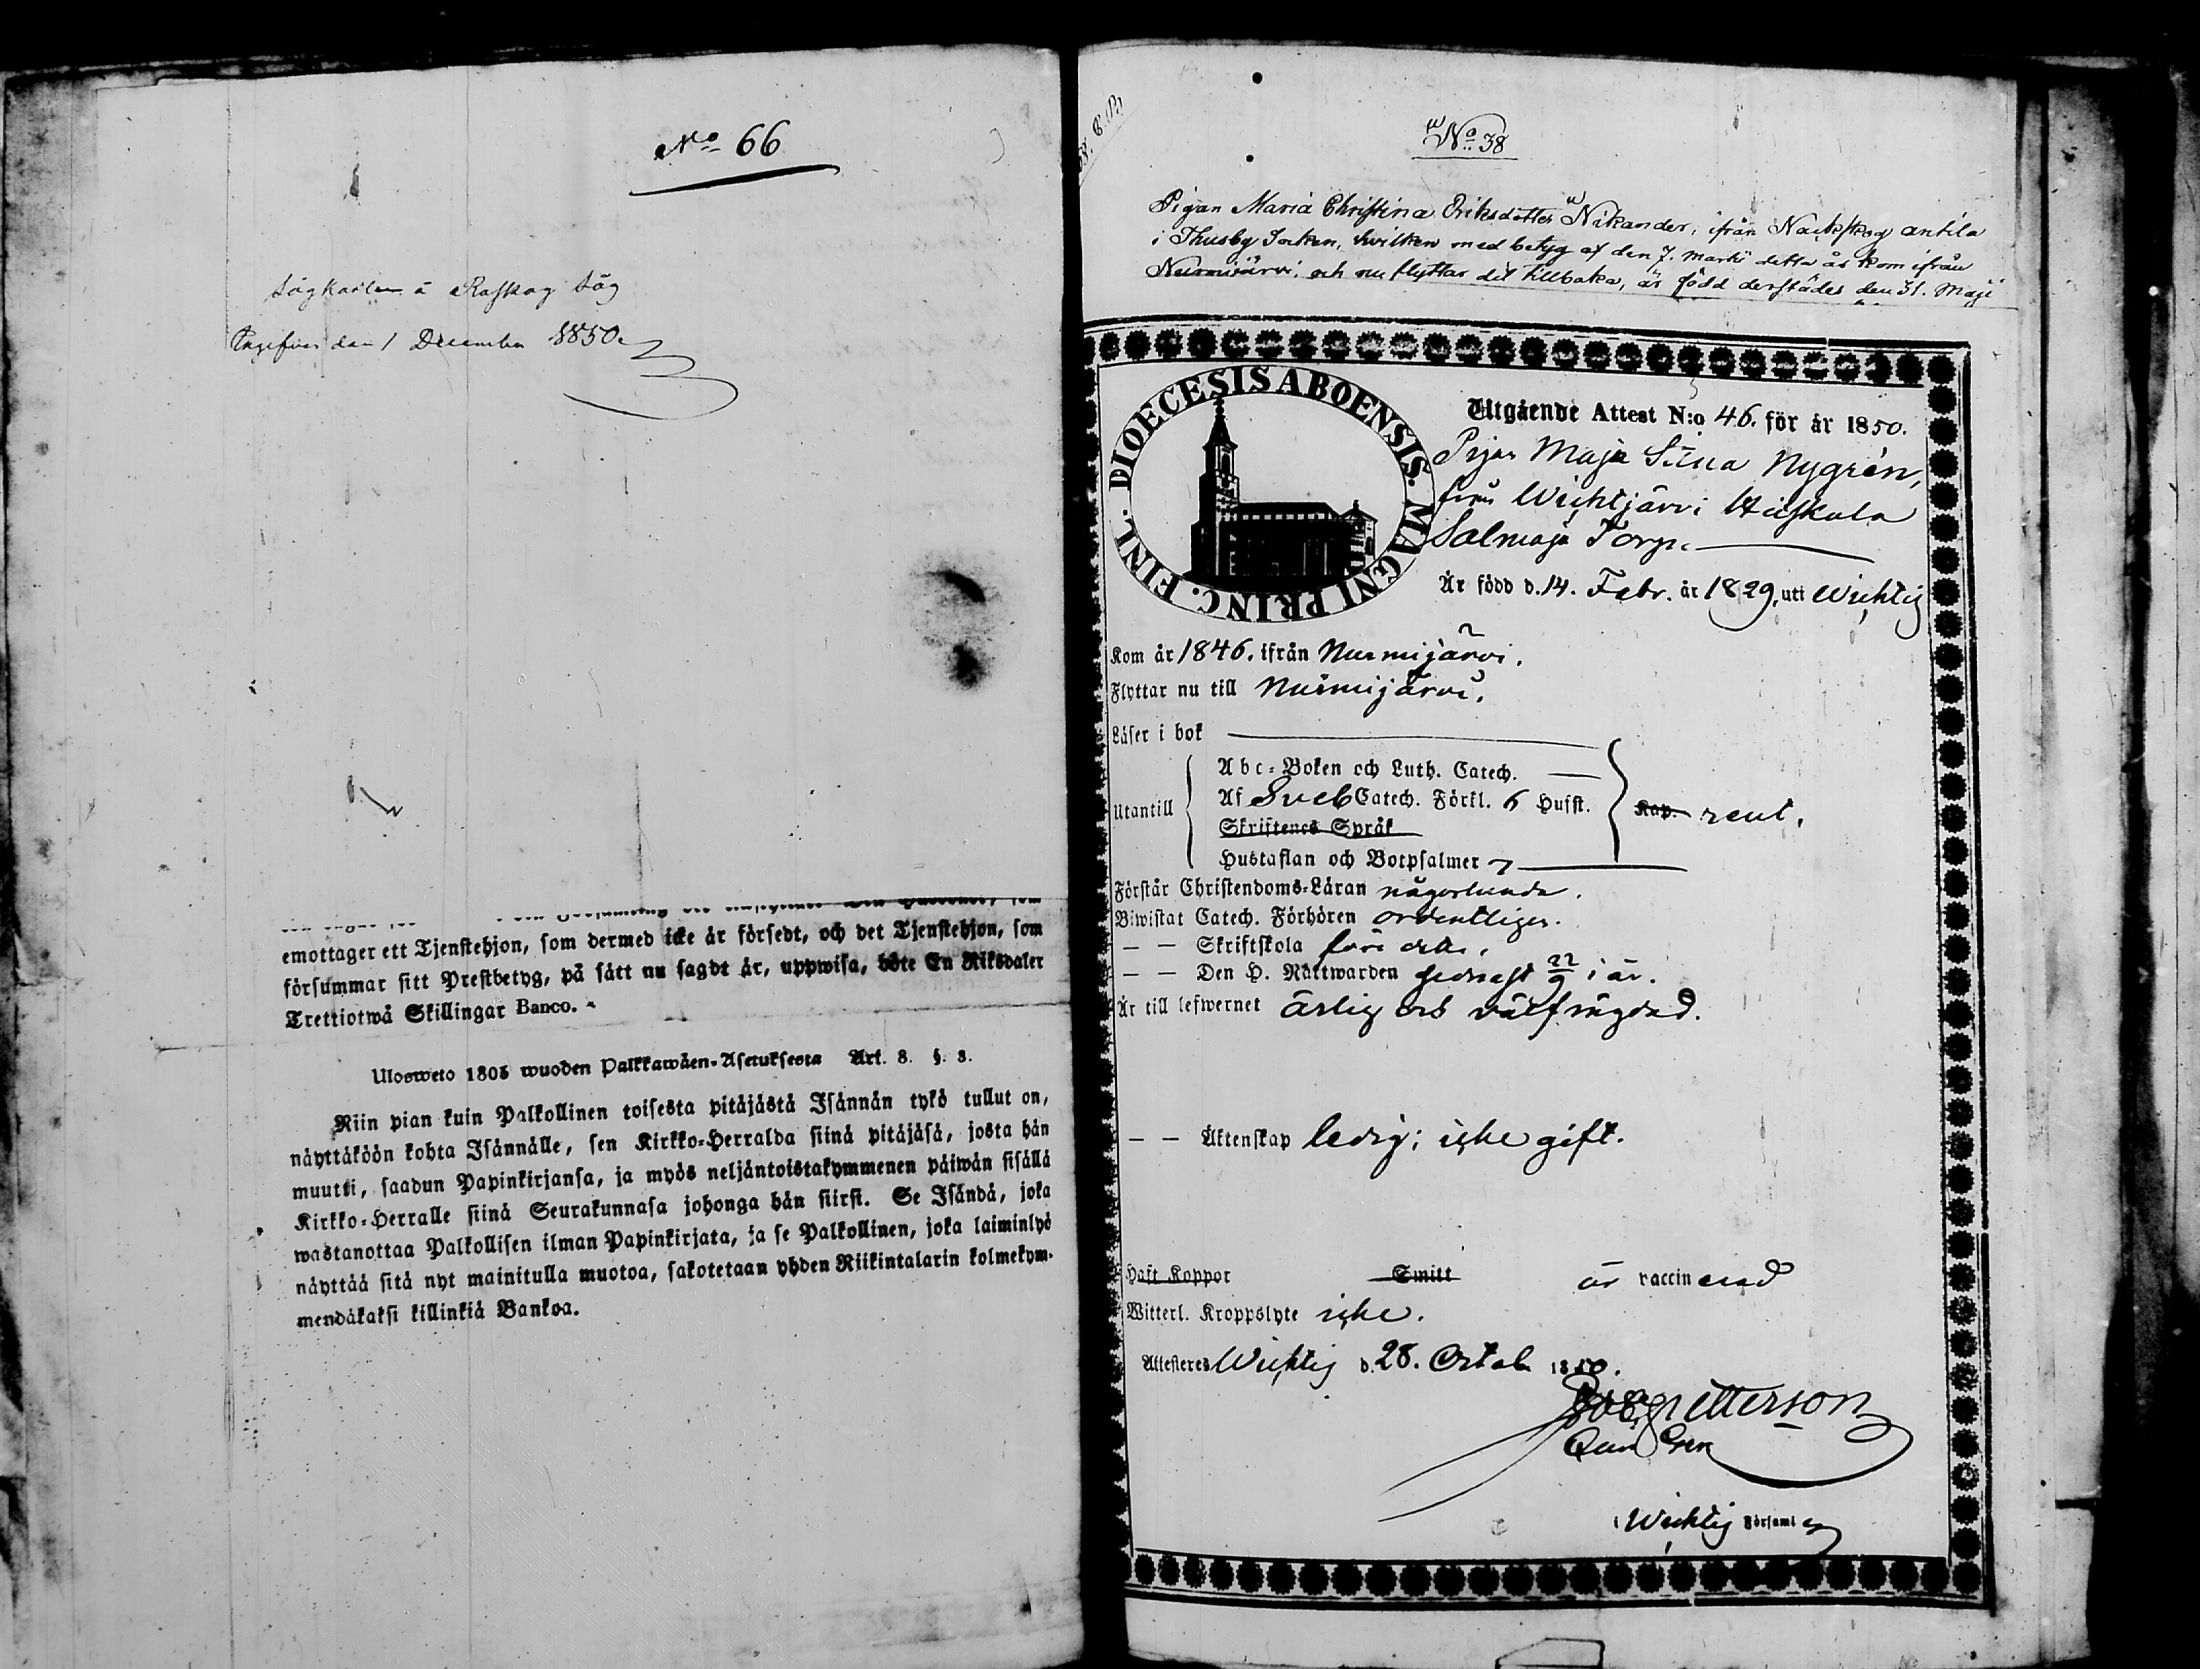 No 66
Sågkarlen å Raskog Såg
Ingifven den 1 December 1850.
emottager ett Tjenstehjon, som dermed icke är försedt, och det Tjenstehjon, som
försummar sitt Prestbetyg, på sätt nu sagdt är, uppwisa, böte En Riksdaler
Trettiotwå Skillingar Banco.
Ulosweto 1805 wuoden Palkkawäen-Asetuksesta Art. 8. §. 3.
Niin pian kuin Palkollinen toisesta pitäjästä Isännän tykö tullut on,
näyttäköön kohta Isännälle, sen Kirkko-Herralda siinä pitäjäsä, josta hän
muutti, saadun Papinkirjansa, ja myös neljäntoistakymmenen päiwän sisällä
Kirkko-Herralle siinä Seurakunnasa johonga hän siirsi. Se Isändä, joka
wastanottaa Palkollisen ilman Papinkirjata, ja se Palkollinen, joka laiminlyö
näyttää sitä nyt mainitulla muotoa, sakotetaan yhden Riikintalarin kolmekym-
mendäkaksi killinkiä Bankoa.
No 38
Pigan Maria Christina Eriksdotter Nikander, ifrån Nackskog antila
i Thusby Socken, hvilken med betyg af den 7. Martii detta år kom ifrån
Nurmijärvi, och nu flyttar dit tillbaka, är född derstädes den 31. Maji
DIOECESIS ABOENSIS. MAGNI PRINC. FINL.
Utgående Attest N:o 46. för år 1850.
Pigan Maja Stina Nygrén,
från Wichtjärvi Hiiskula
Salmoja Torp.
Är född d. 14. Febr. år 1829, uti Wichtis
Kom år 1846. ifrån Nurmijärvi.
Flyttar nu till Nurmijärvi.
Läser i bok
Utantill
Abc-Boken och Luth. Catech.
Af Sveb Catech. Förkl. 6 Hufst.
Kap. rent.
Skriftenes Språk
Hustaflan och Botpsalmer 7
Förstår Christendoms-Läran någorlunda.
Biwistat Catech. Förhören ordentligen.
— — Skriftskola
— — Den H. Nattwarden sednast 22/9 i år.
Är till lefwernet ärlig och välfrägdad.
— — Äktenskap ledig; icke gift.
Haft Koppor Smitt är vaccinerad
Witterl. Kroppslyte icke.
Attesteres Wichtis d. 28. Octob 1850.
Petterson
i Wichtis Församl